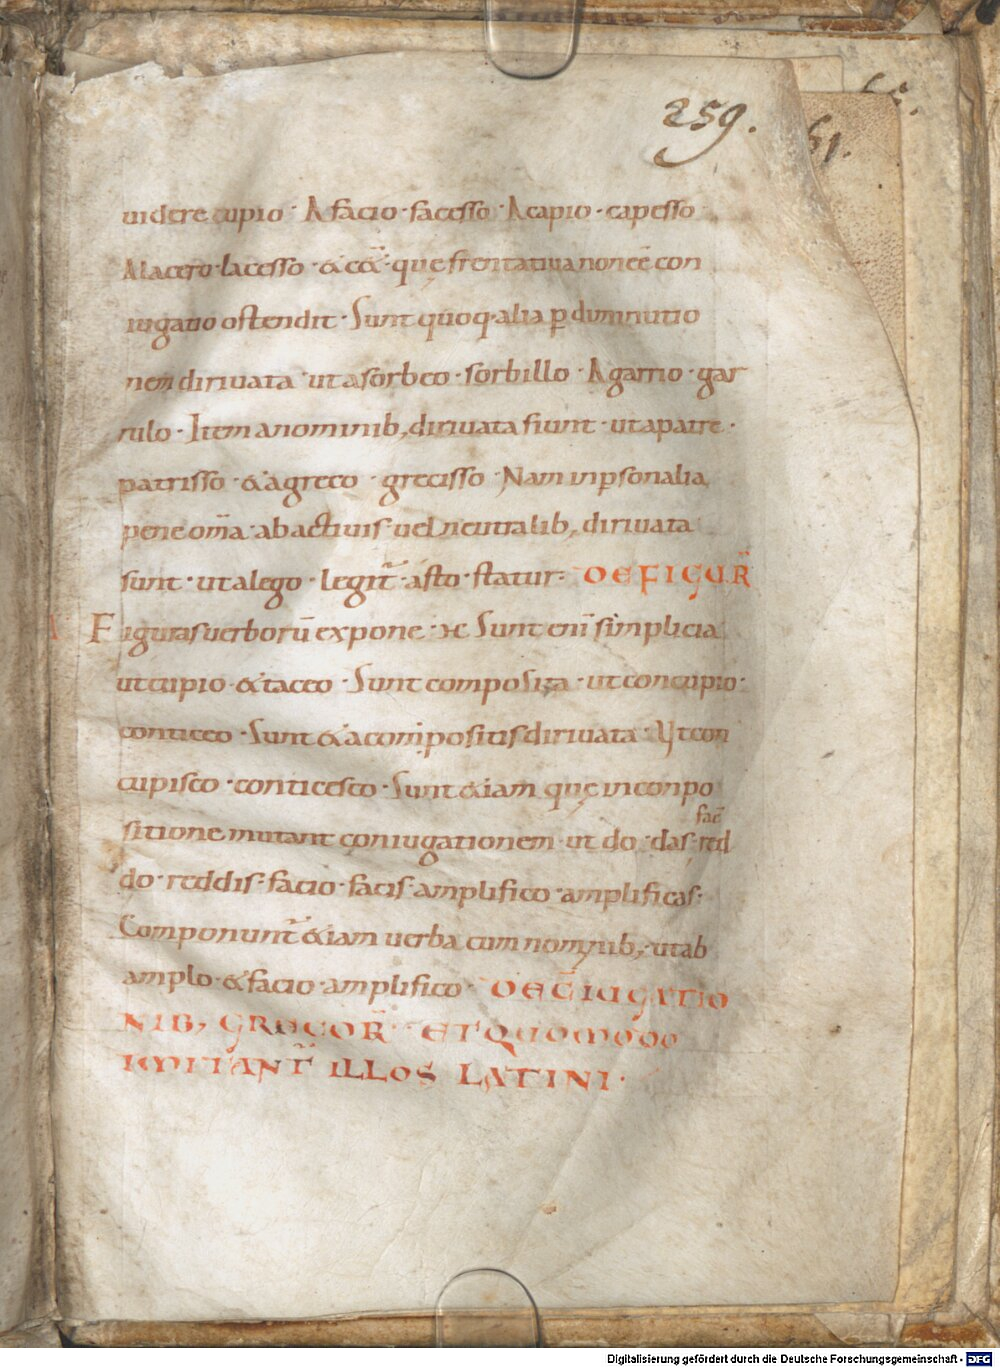 259.
61.
uidere cupio · A facio · facesso · A capio · capesso
A lacero · lacesso · & cet̄ · que frentatiua non eē con
iugatio ostendit · Sunt quoq· alia ꝑ diminutio
nem diriuata · ut a sorbeo · sorbillo · A garrio · gar
rulo · Item a nominib; diriuata fiunt · ut a patre ·
patrisso · & a greco · grecisso · Nam inꝑsonalia
pene om̄a · ab actiuis uel neutralib; diriuata
sunt · ut a lego · legit̄ · a sto · statur · DE FIGUR̄
Figuras uerborū expone · Sunt eni̅ simplicia
ut cupio · & taceo · Sunt composita · ut concupio ·
conticeo · Sunt & a compositis diriuata · Ut con
cupisco · conticesco · Sunt & iam que in conpo
sitione mutant coniugationem · ut do · das · red
fac̄
do · reddis · facio · facis · amplifico · amplificas ·
Componunt̄ & iam uerba cum nominib; · ut ab
amplo · & facio · amplifico · DE C̄IUGATIO
NIB; GRECOR̄ · ET QUOMODO
IMITANT̄ ILLOS LATINI ·
Digitalisierung gefördert durch die Deutsche Forschungsgemeinschaft - DFG